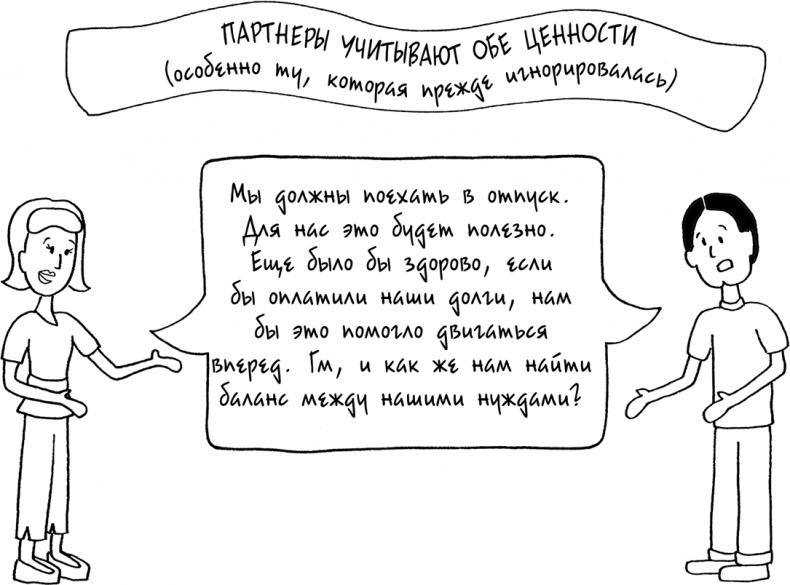 ПАРТНЕРЫ УЧИТЫВАЮТ ОБЕ ЦЕННОСТИ
(особенно ту, которая прежде игнорировалась)
Мы должны поехать в отпуск.
Для нас это будет полезно.
Еще было бы здорово, если
бы оплатили наши долги, нам
бы это помогло двигаться
вперед. Гм, и как же нам найти
баланс между нашими нуждами?